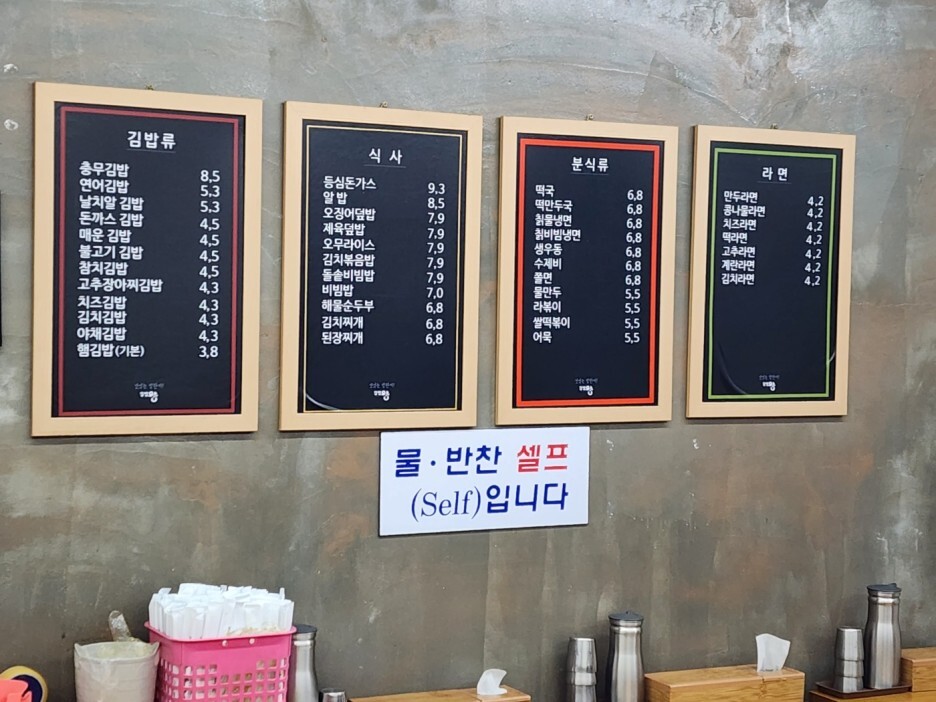 김밥류
충무김밥 8,5
연어김밥 5,3
날치알 김밥 5,3
돈까스 김밥 4,5
매운 김밥 4,5
불고기 김밥 4,5
참치김밥 4,5
고추장아찌김밥 4,3
치즈김밥 4,3
김치김밥 4,3
야채김밥 4,3
햄김밥(기본) 3,8
식 사
등심돈가스 9,3
알 밥 8,5
오징어덮밥 7,9
제육덮밥 7,9
오무라이스 7,9
김치볶음밥 7,9
돌솥비빔밥 7,9
비빔밥 7,0
해물순두부 6,8
김치찌개 6,8
된장찌개 6,8
분식류
떡국 6,8
떡만두국 6,8
칡물냉면 6,8
칡비빔냉면 6,8
생우동 6,8
수제비 6,8
쫄면 6,8
물만두 5,5
라볶이 5,5
쌀떡볶이 5,5
어묵 5,5
라 면
만두라면 4,2
콩나물라면 4,2
치즈라면 4,2
떡라면 4,2
고추라면 4,2
계란라면 4,2
김치라면 4,2
물·반찬 셀프
(Self)입니다